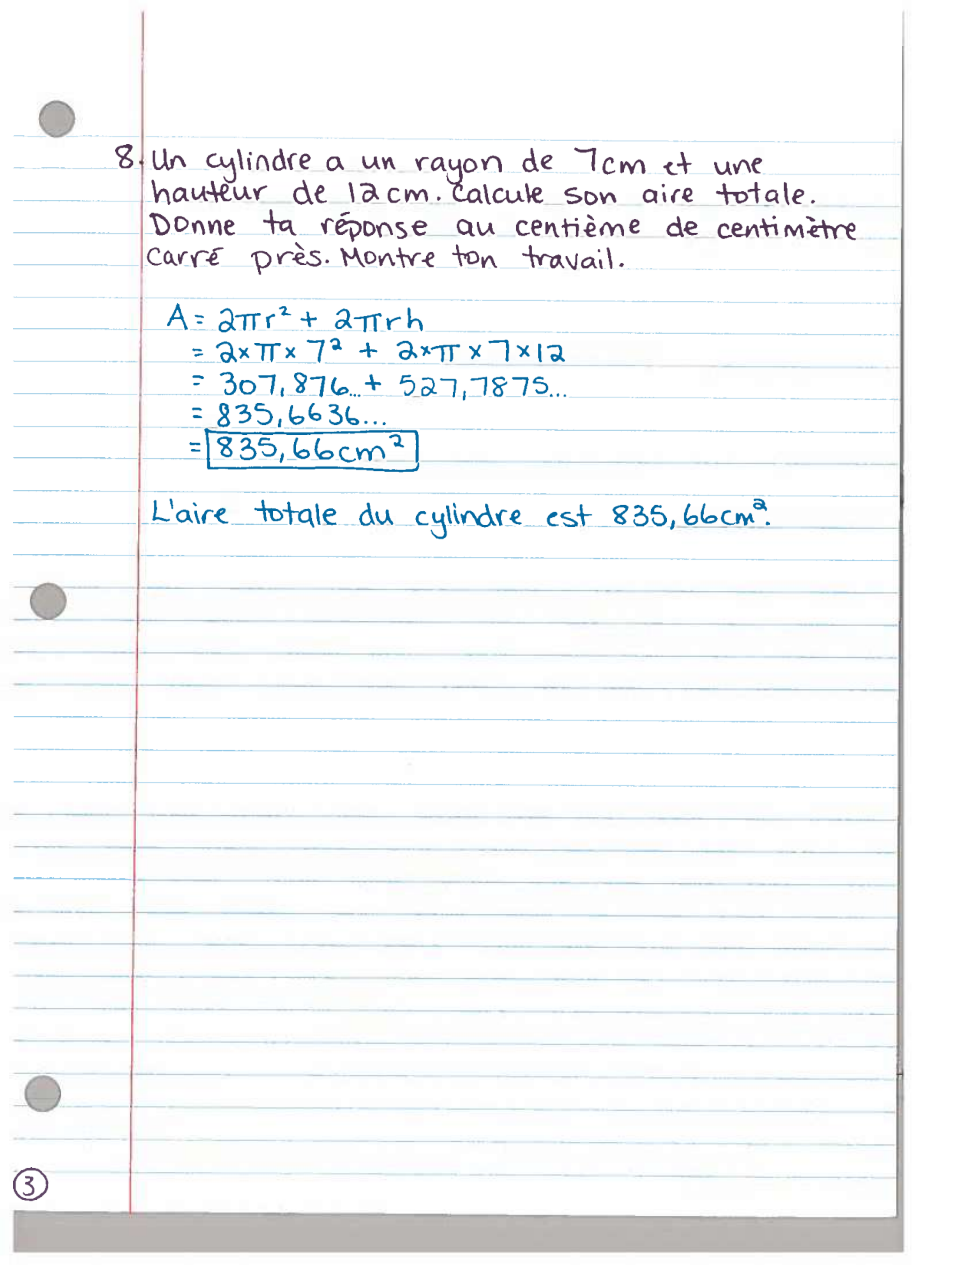 8. Un cylindre a un rayon de 7cm et une
hauteur de 12cm. Calcule son aire totale.
Donne ta réponse au centième de centimètre
carré près. Montre ton travail.
A = 2πr² + 2πrh
= 2×π× 7² + 2×π × 7×12
= 307,876... + 527,7875...
= 835,6636...
= 835,66cm²
L'aire totale du cylindre est 835,66cm².
3